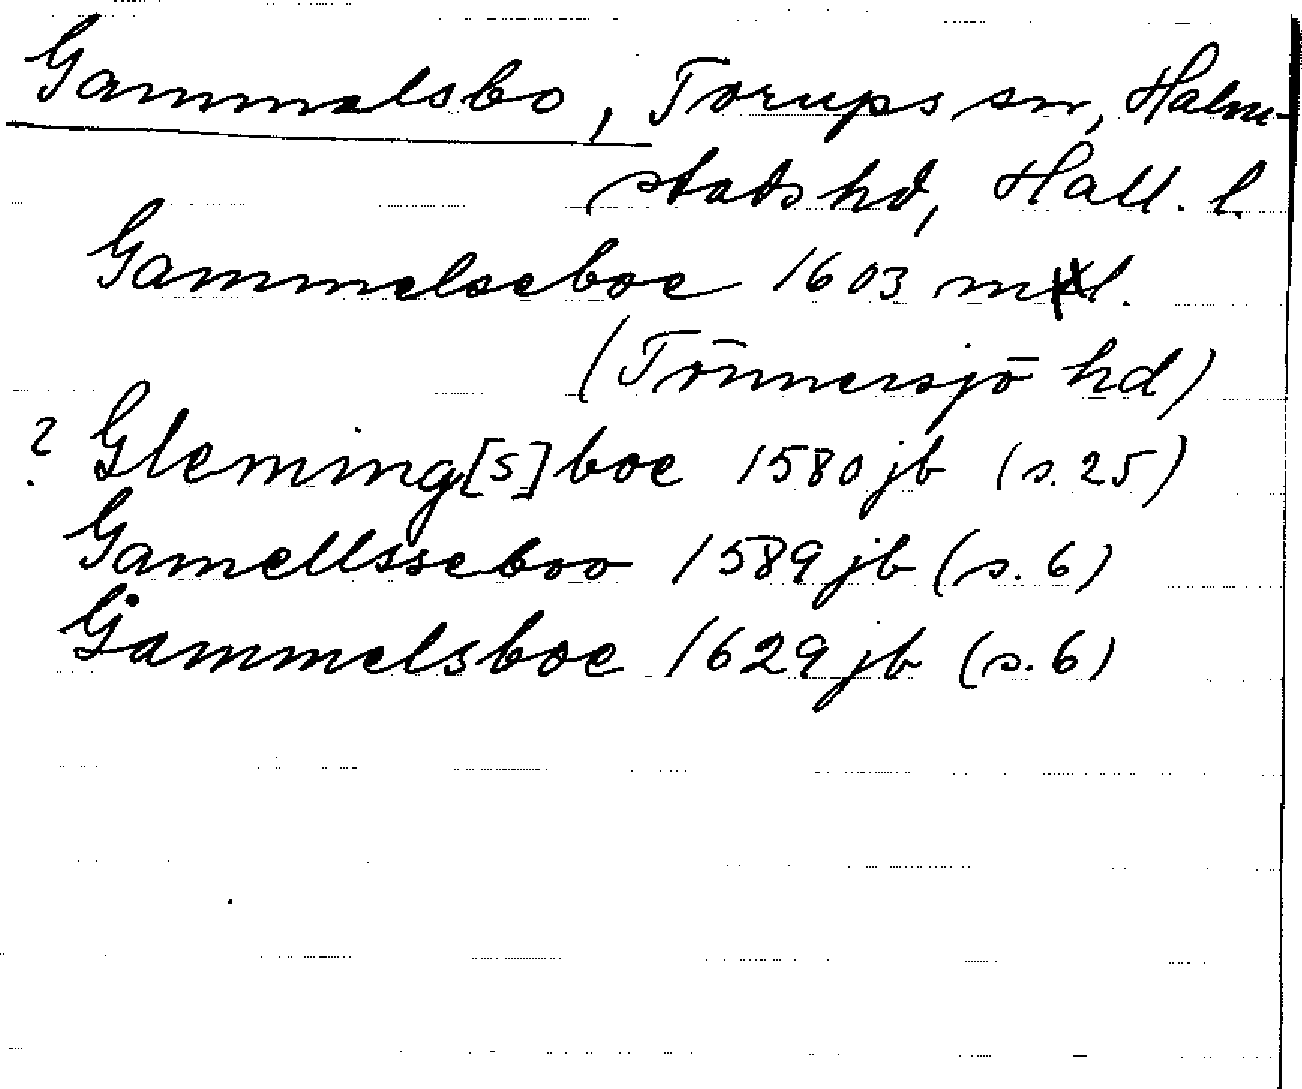 Gammalsbo, Torups sn, Halm-
stads hd, Hall. l.
Gammelseboe 1603 mtl.
(Tönnersjö hd)
? Gleming[s]boe 1580 jb (s. 25)
Gamellsseboo 1589 jb (s. 6)
Gammelsboe 1629 jb (s. 6)